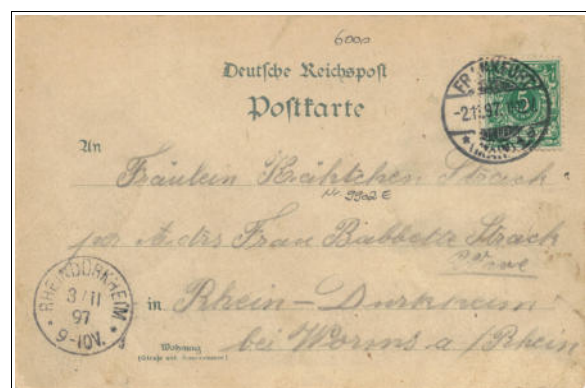 6000
Deutsche Reichspost
Postkarte
FRANKFURT
-2.11.97.
* (MAIN) *
5
An
Fräulein Käthchen Strack
Nr. 9902 E
per Adrs Frau Babbette Strack
Wwe
RHEINDÜRKHEIM
3/11
97
9-10V.
in Rhein-Durkheim
Wohnung
(Straße und Hausnummer)
bei Worms a/Rhein